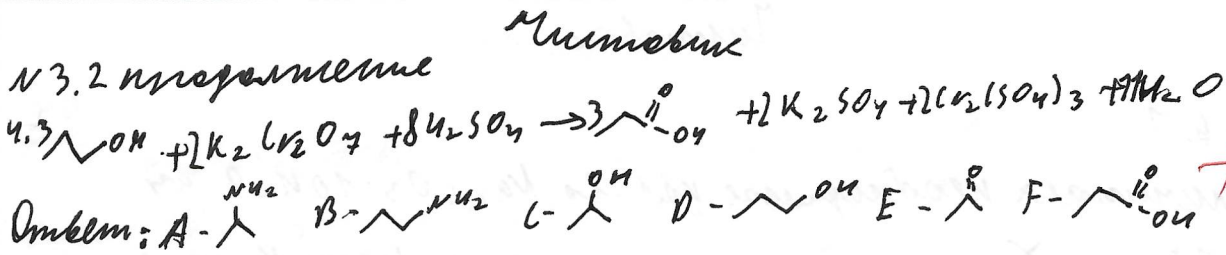 Чистовик
N 3.2 продолжение
4. 3 OH + 2K₂Cr₂O₇ + 8H₂SO₄ → 3 O OH + 2K₂SO₄ + 2Cr₂(SO₄)₃ + 11H₂O
Ответ: A - NH₂ B - NH₂ C - OH D - OH E - O F - O OH